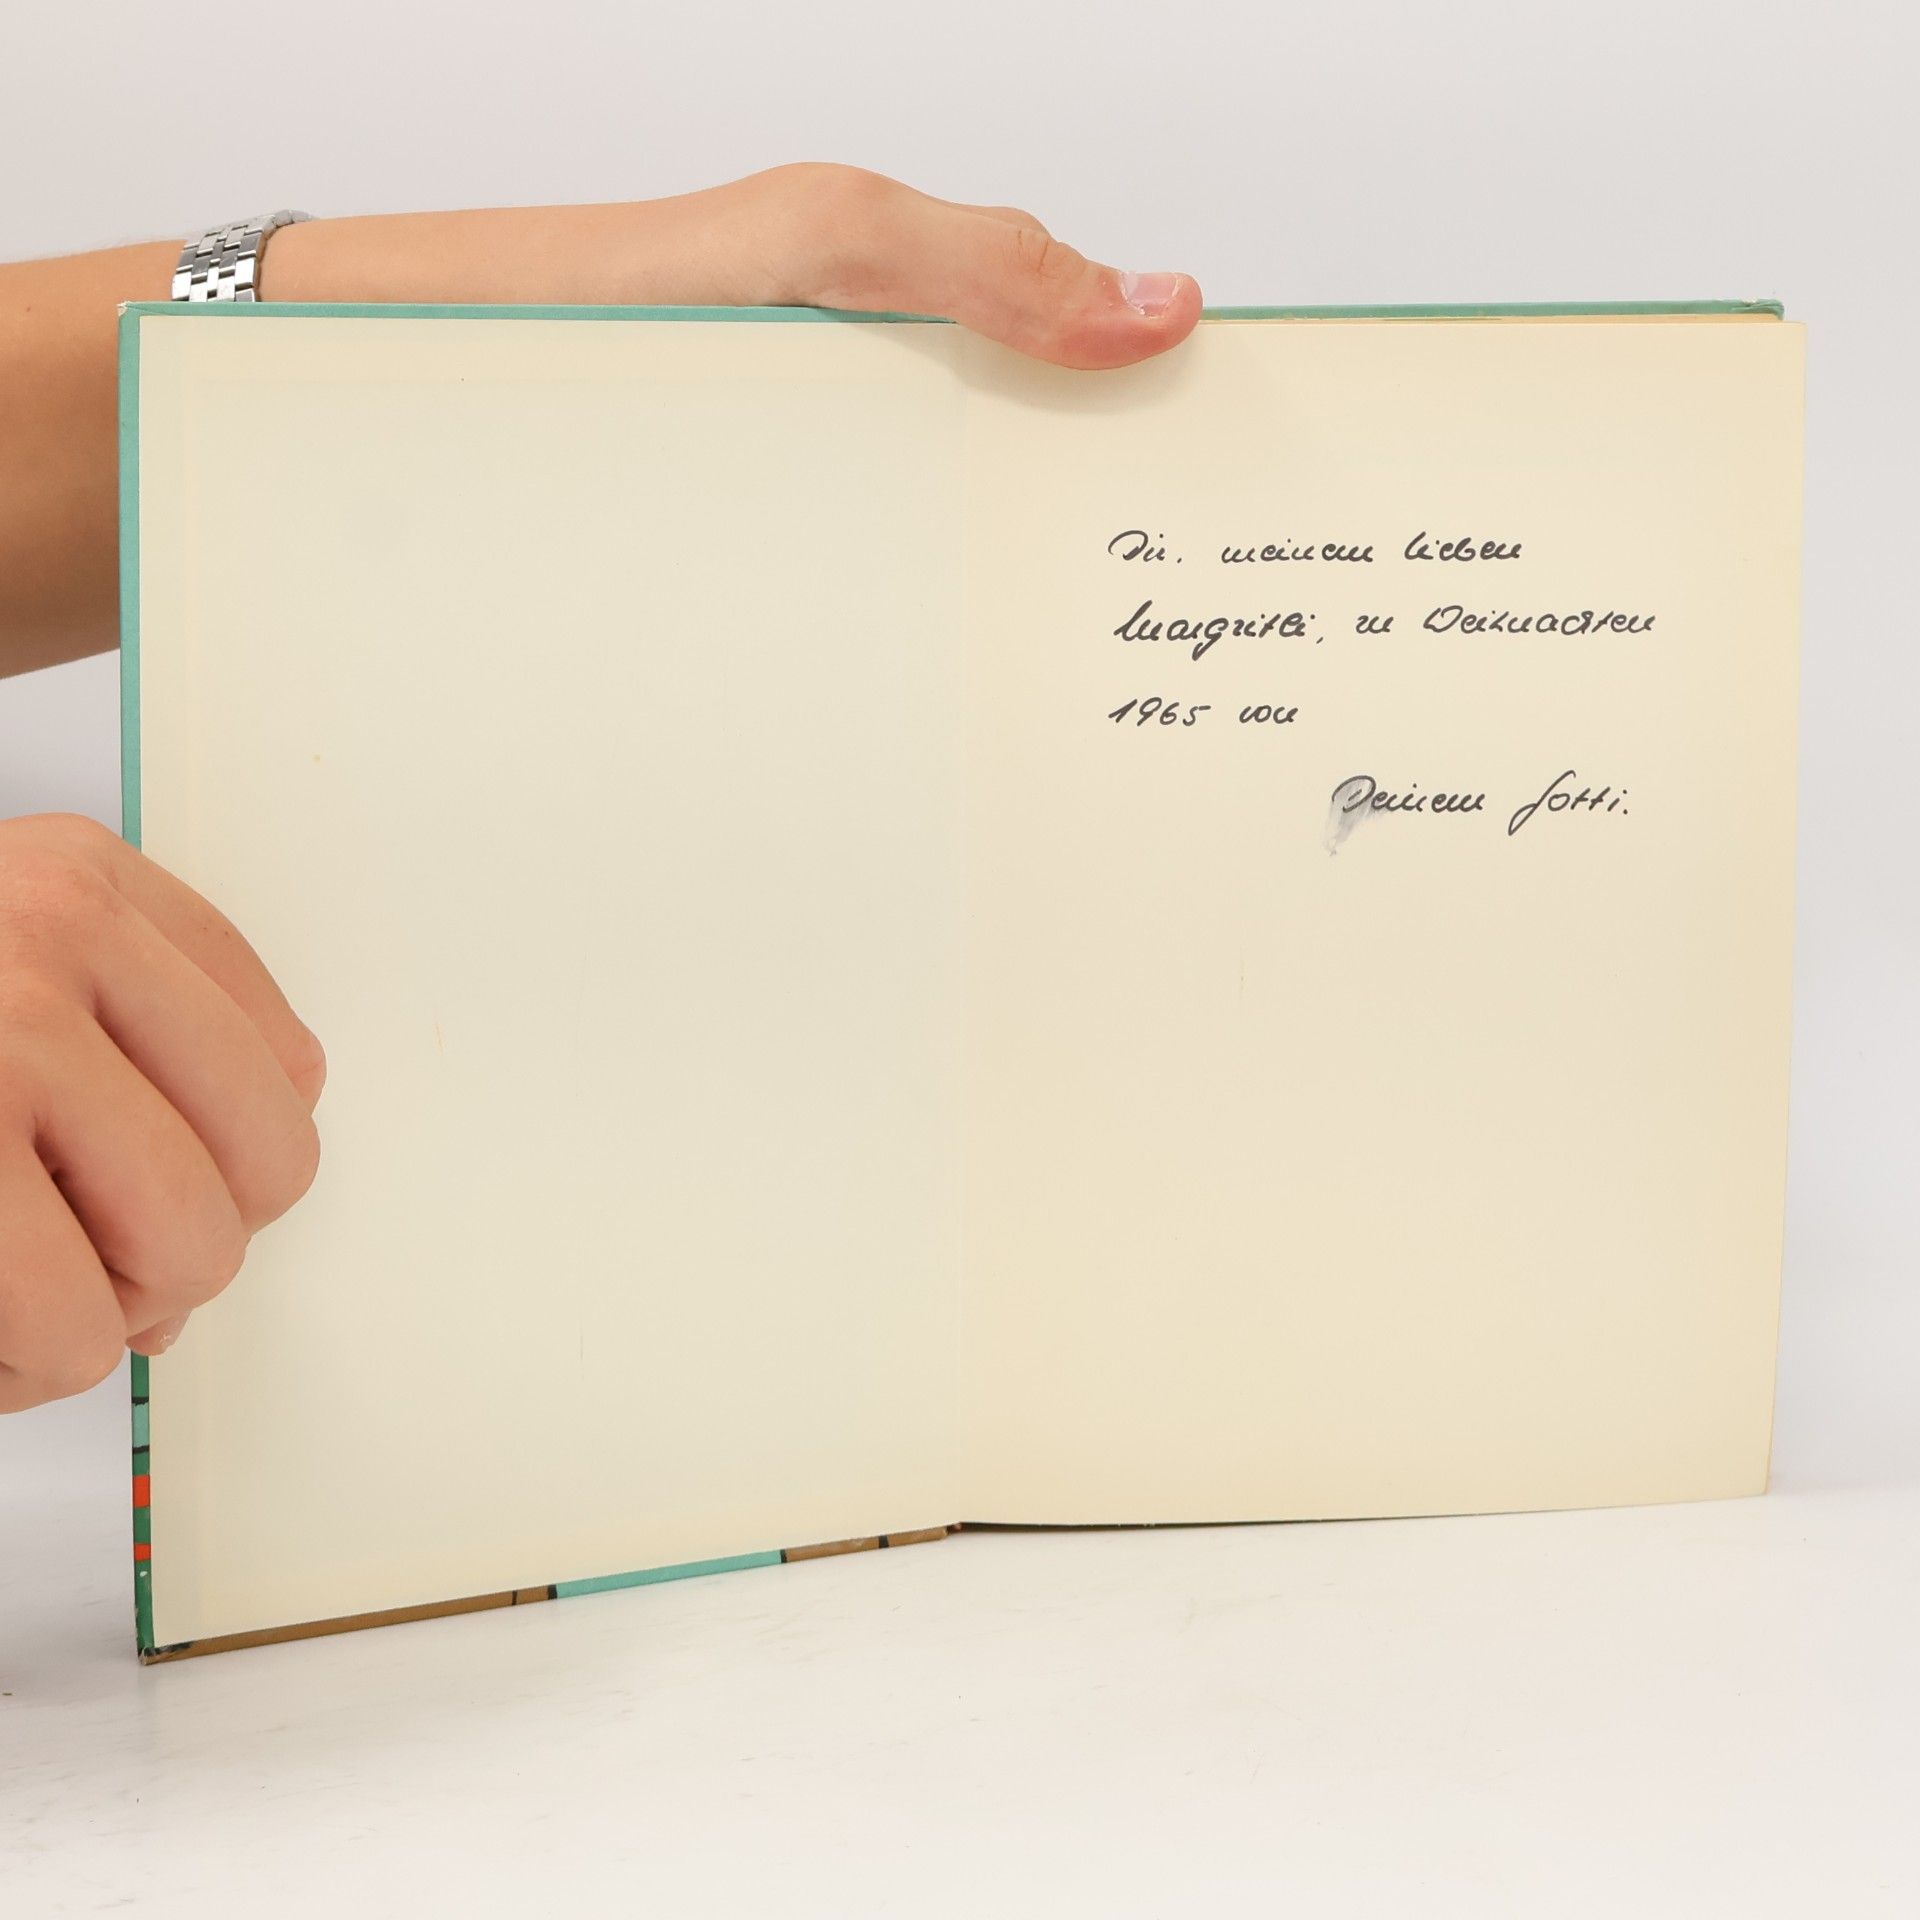 Dir, meinem lieben
Margritli, zu Weihnachten
1965 von
Deinem Gotti.